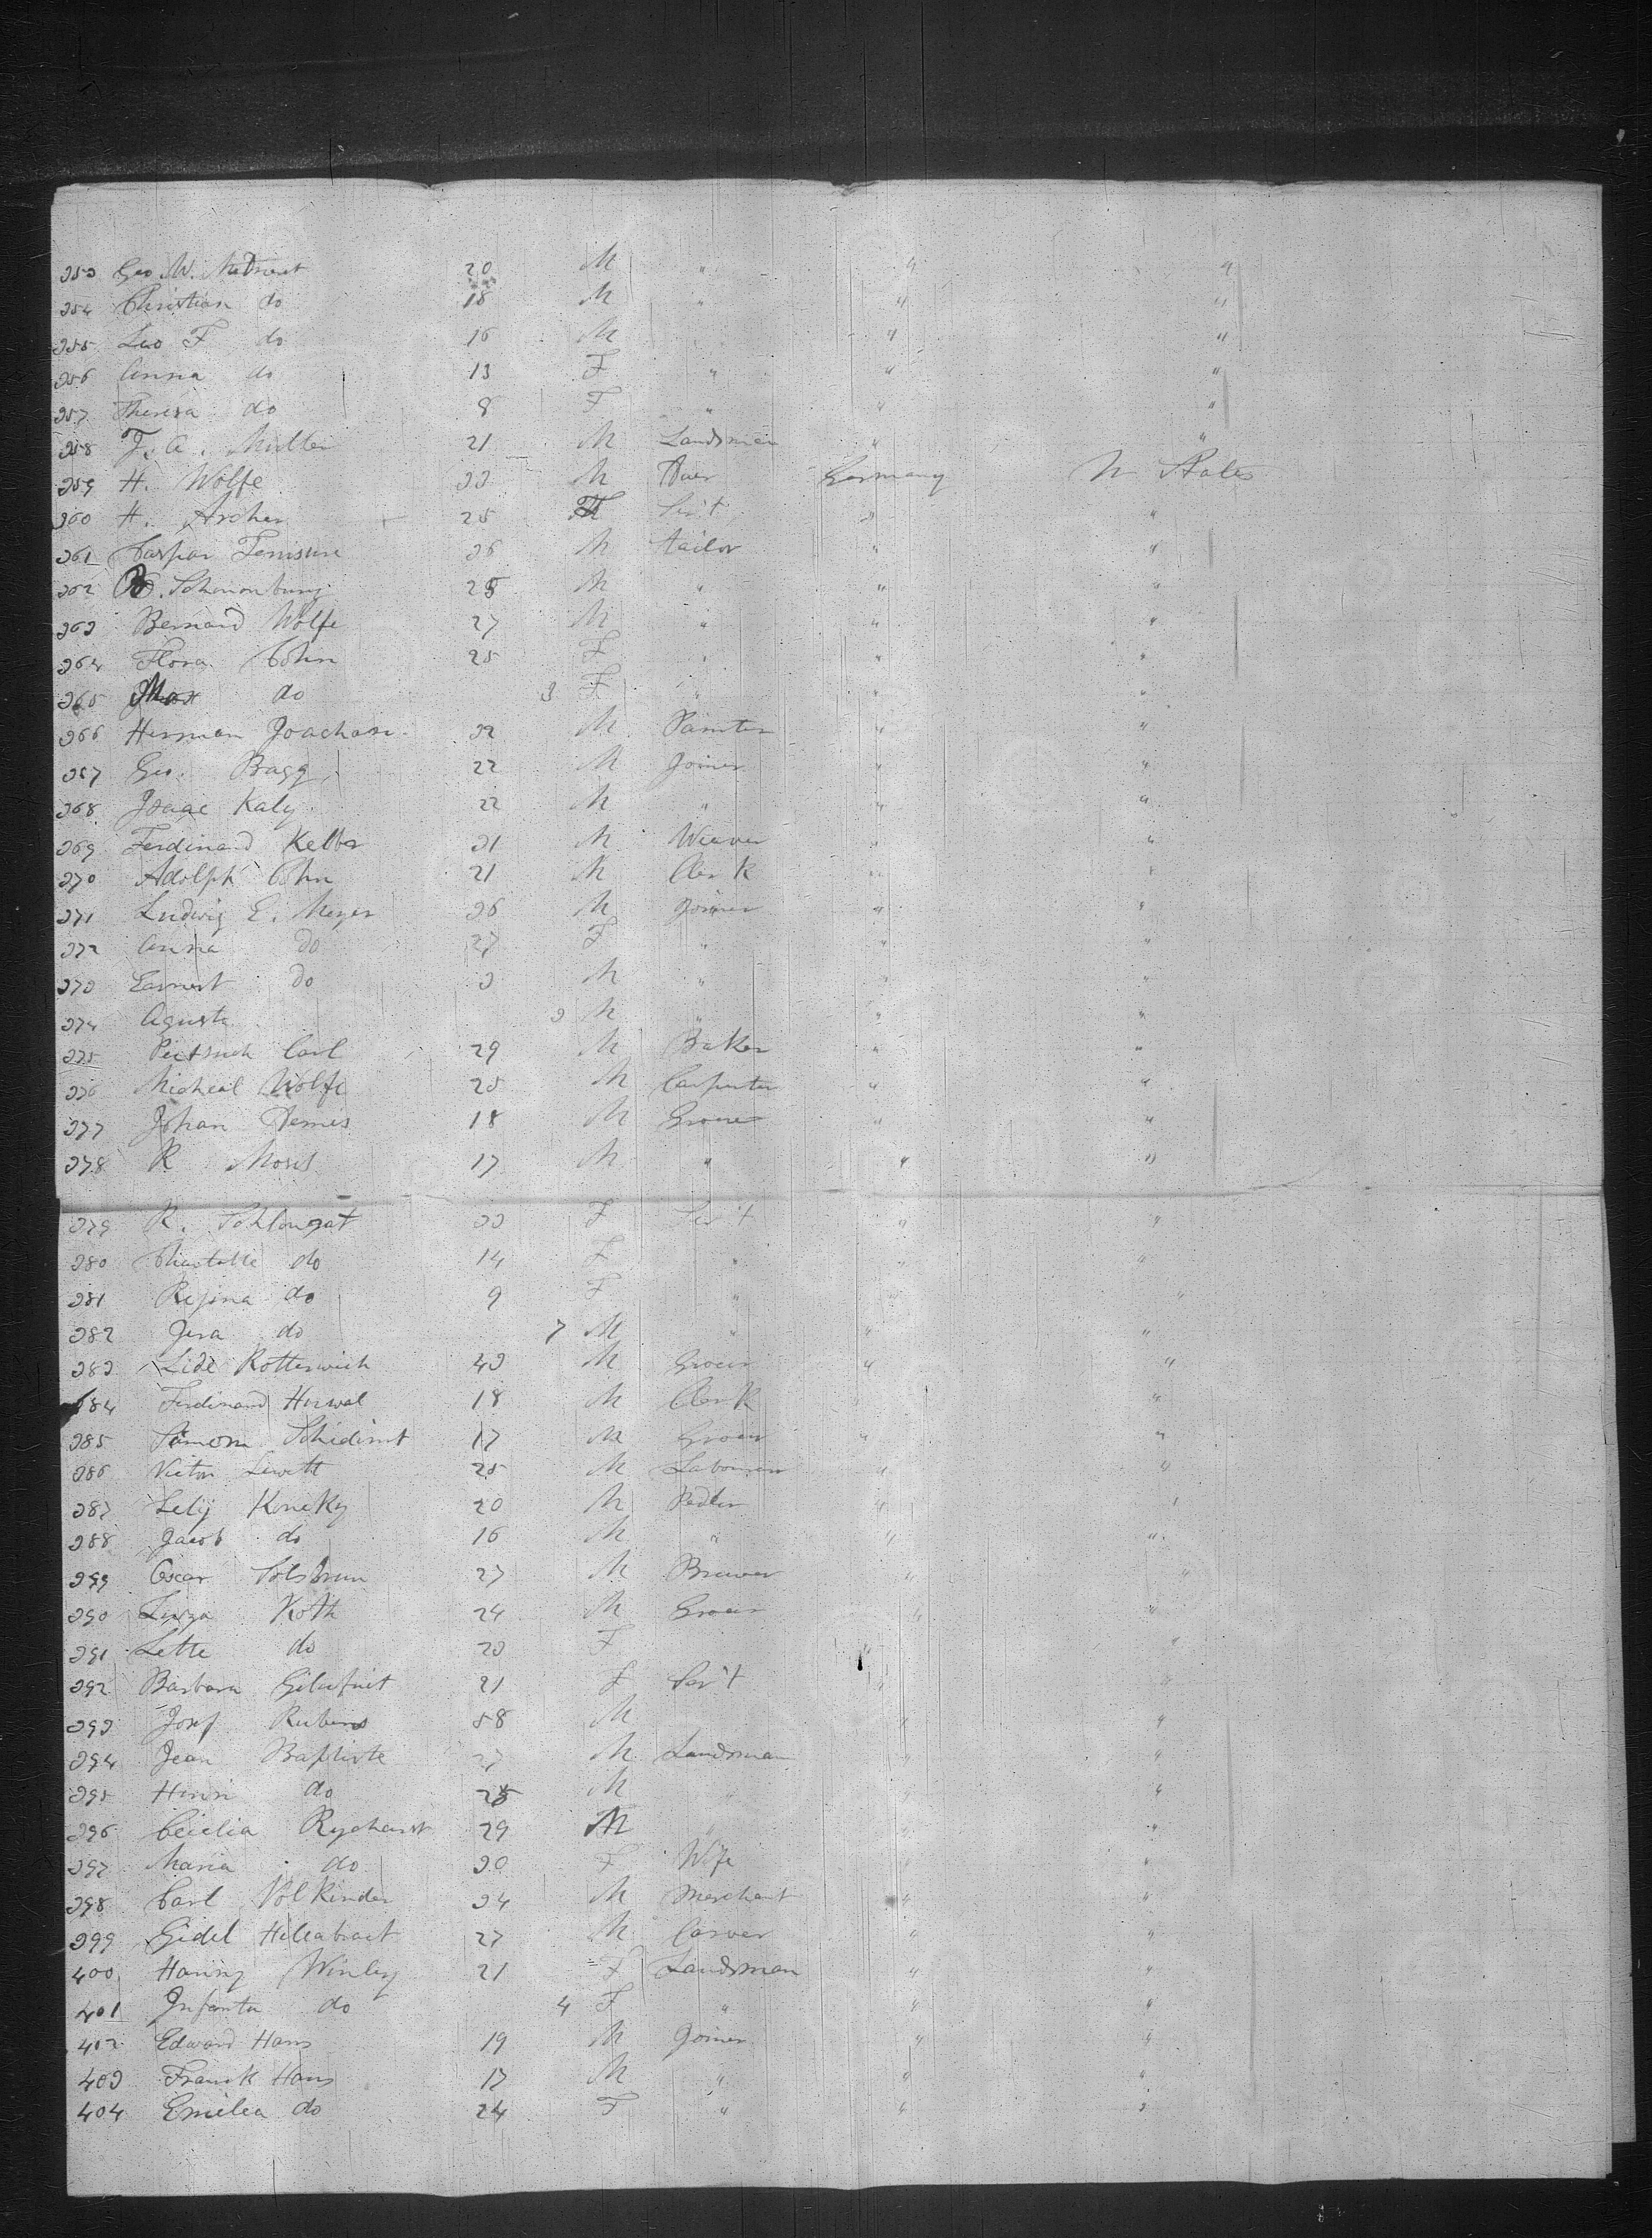 353 Geo. W. 20 M " " "
354 Christian do 18 M " " "
355 Leo F do 16 M " "
356 Anna do 13 F " " "
357 Theresa do 8 F " " "
358 J. A. Muller 21 M Landsman " "
359 H. Wolfe 33 M Germany U States
360 H. Archer 25 F Ser't " "
361 Caspar 36 M tailor " "
362 B. Schmonburg 25 M " " "
363 Bernard Wolfe 27 M " " "
364 Flora Cohn 25 F " " "
365 Max do 3 F " " "
366 Herman Joacham 32 M Painter " "
367 Geo. Bagg 22 M Joiner " "
368 Isaac Kaly 22 M " " "
369 Ferdinand Kelber 31 M Weaver " "
370 Adolph Cohn 21 M Clerk " "
371 Ludwig E. Meyer 36 M Joiner " "
372 Anna do 27 F " " "
373 Earnest do 3 M " " "
374 Aguste 9 M " " "
375 Carl 29 M Baker " "
376 Micheal Wolfe 25 M Carpenter " "
377 Johan 18 M Grocer " "
378 R Moses 17 M " " "
379 R. 33 F Ser't " "
380 do 14 F " " "
381 Regina do 9 F " "
382 Jera do 7 M " " "
383 Lide Rotterwich 43 M Grocer " "
384 Ferdinand Horwal 18 M Clerk " "
385 Simon Schidimt 17 M Grocer " "
386 Victor Lewett 25 M Labourer " "
387 Lely Koneky 20 M Pedler " "
388 Jacob do 16 M " " "
399 Oscar 27 M Brewer " "
390 Luiza Koth 24 M Grocer " "
391 Lette do 20 F " "
392 Barbara 21 F Ser't " "
393 Josef Rubens 58 M " "
394 Jean Baptiste 27 M Landsman " "
395 Henri do 25 M " " "
396 Cecilia Rychaert 29 M " " "
397 Maria do 30 F Wife " "
398 Carl Volkinder 34 M Merchant " "
399 Gidel 27 M Carver " "
400 Hanny Winley 21 F Landsman " "
401 Infanta do 4 F " " "
402 Edward Hans 19 M Joiner " "
403 Frank Hans 17 M " " "
404 Emilea do 24 F " " "